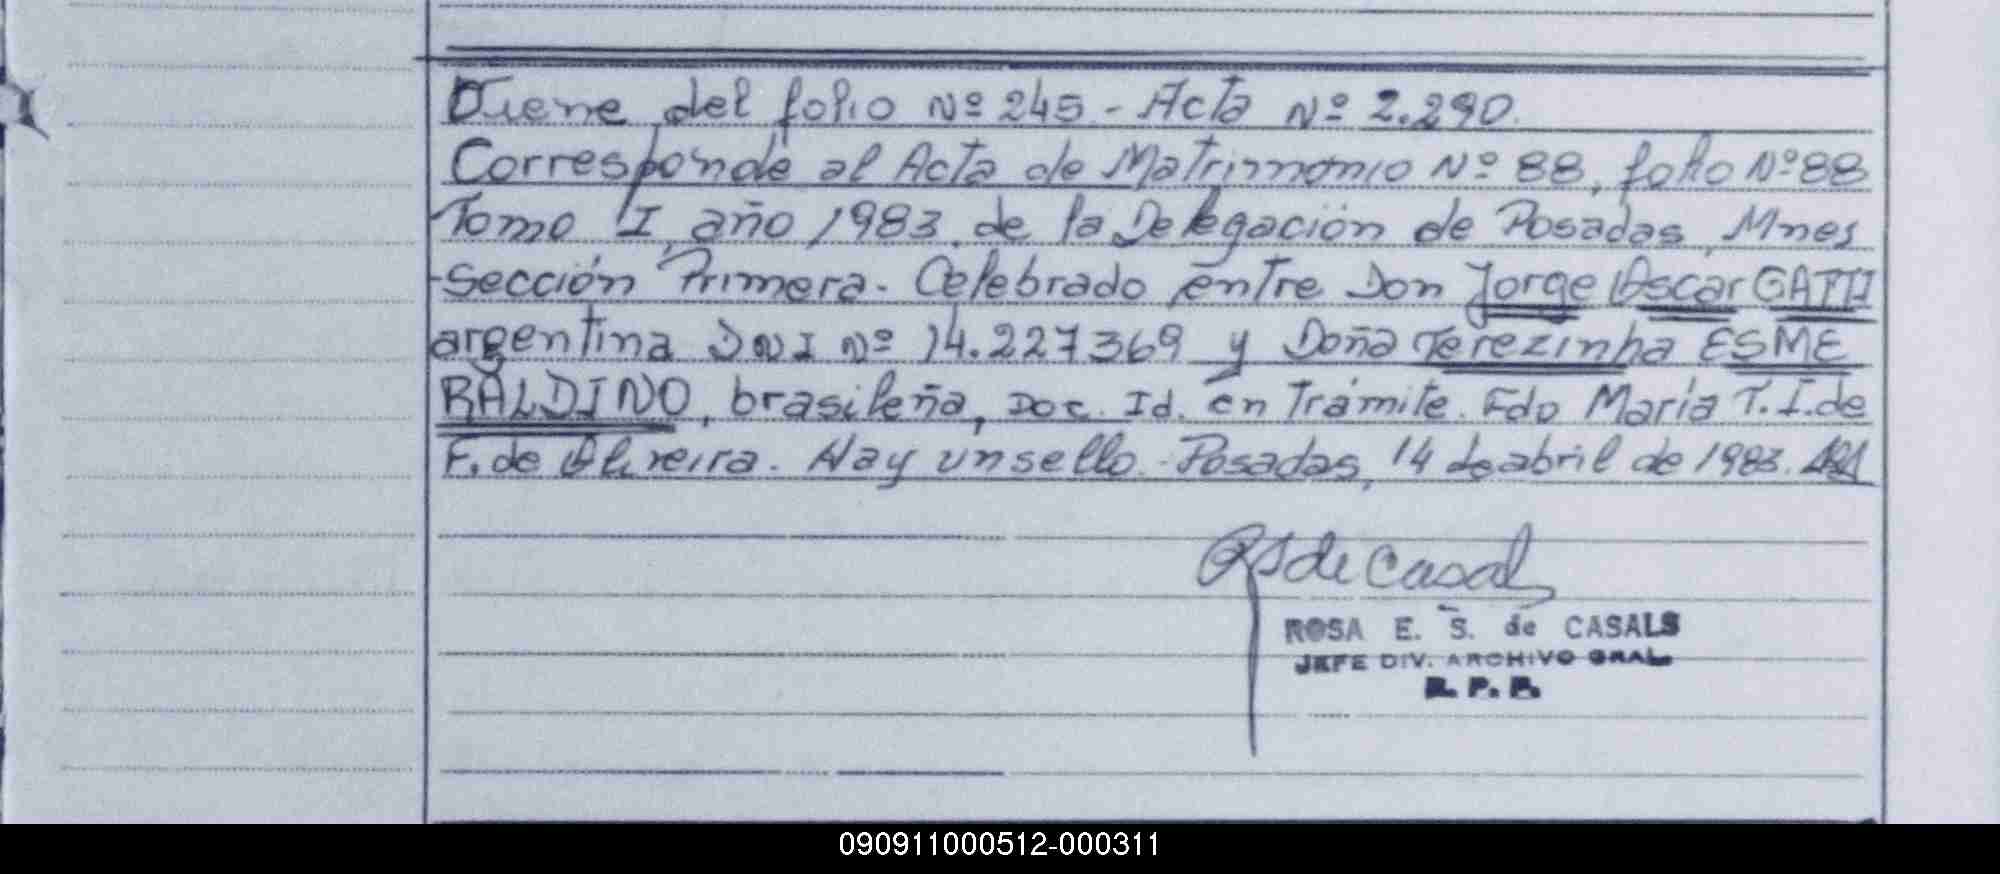 Viene del folio Nº 245 - Acta Nº 2.290.
Corresponde al Acta de Matrimonio Nº 88, folio Nº 88
Tomo I, año 1983, de la Delegación de Posadas, Mnes
Sección Primera. Celebrado entre Don Jorge Oscar GATTI
argentina DNI Nº 14.227369 y Doña Terezinha ESME
RALDINO, brasileña, Doc. Id. en Trámite. Fdo María T. I. de
F. de Oliveira. Hay un sello. - Posadas, 14 de abril de 1983.
RS de Casals
ROSA E. S. de CASALS
JEFE DIV. ARCHIVO GRAL.
R. P. P.
090911000512-000311